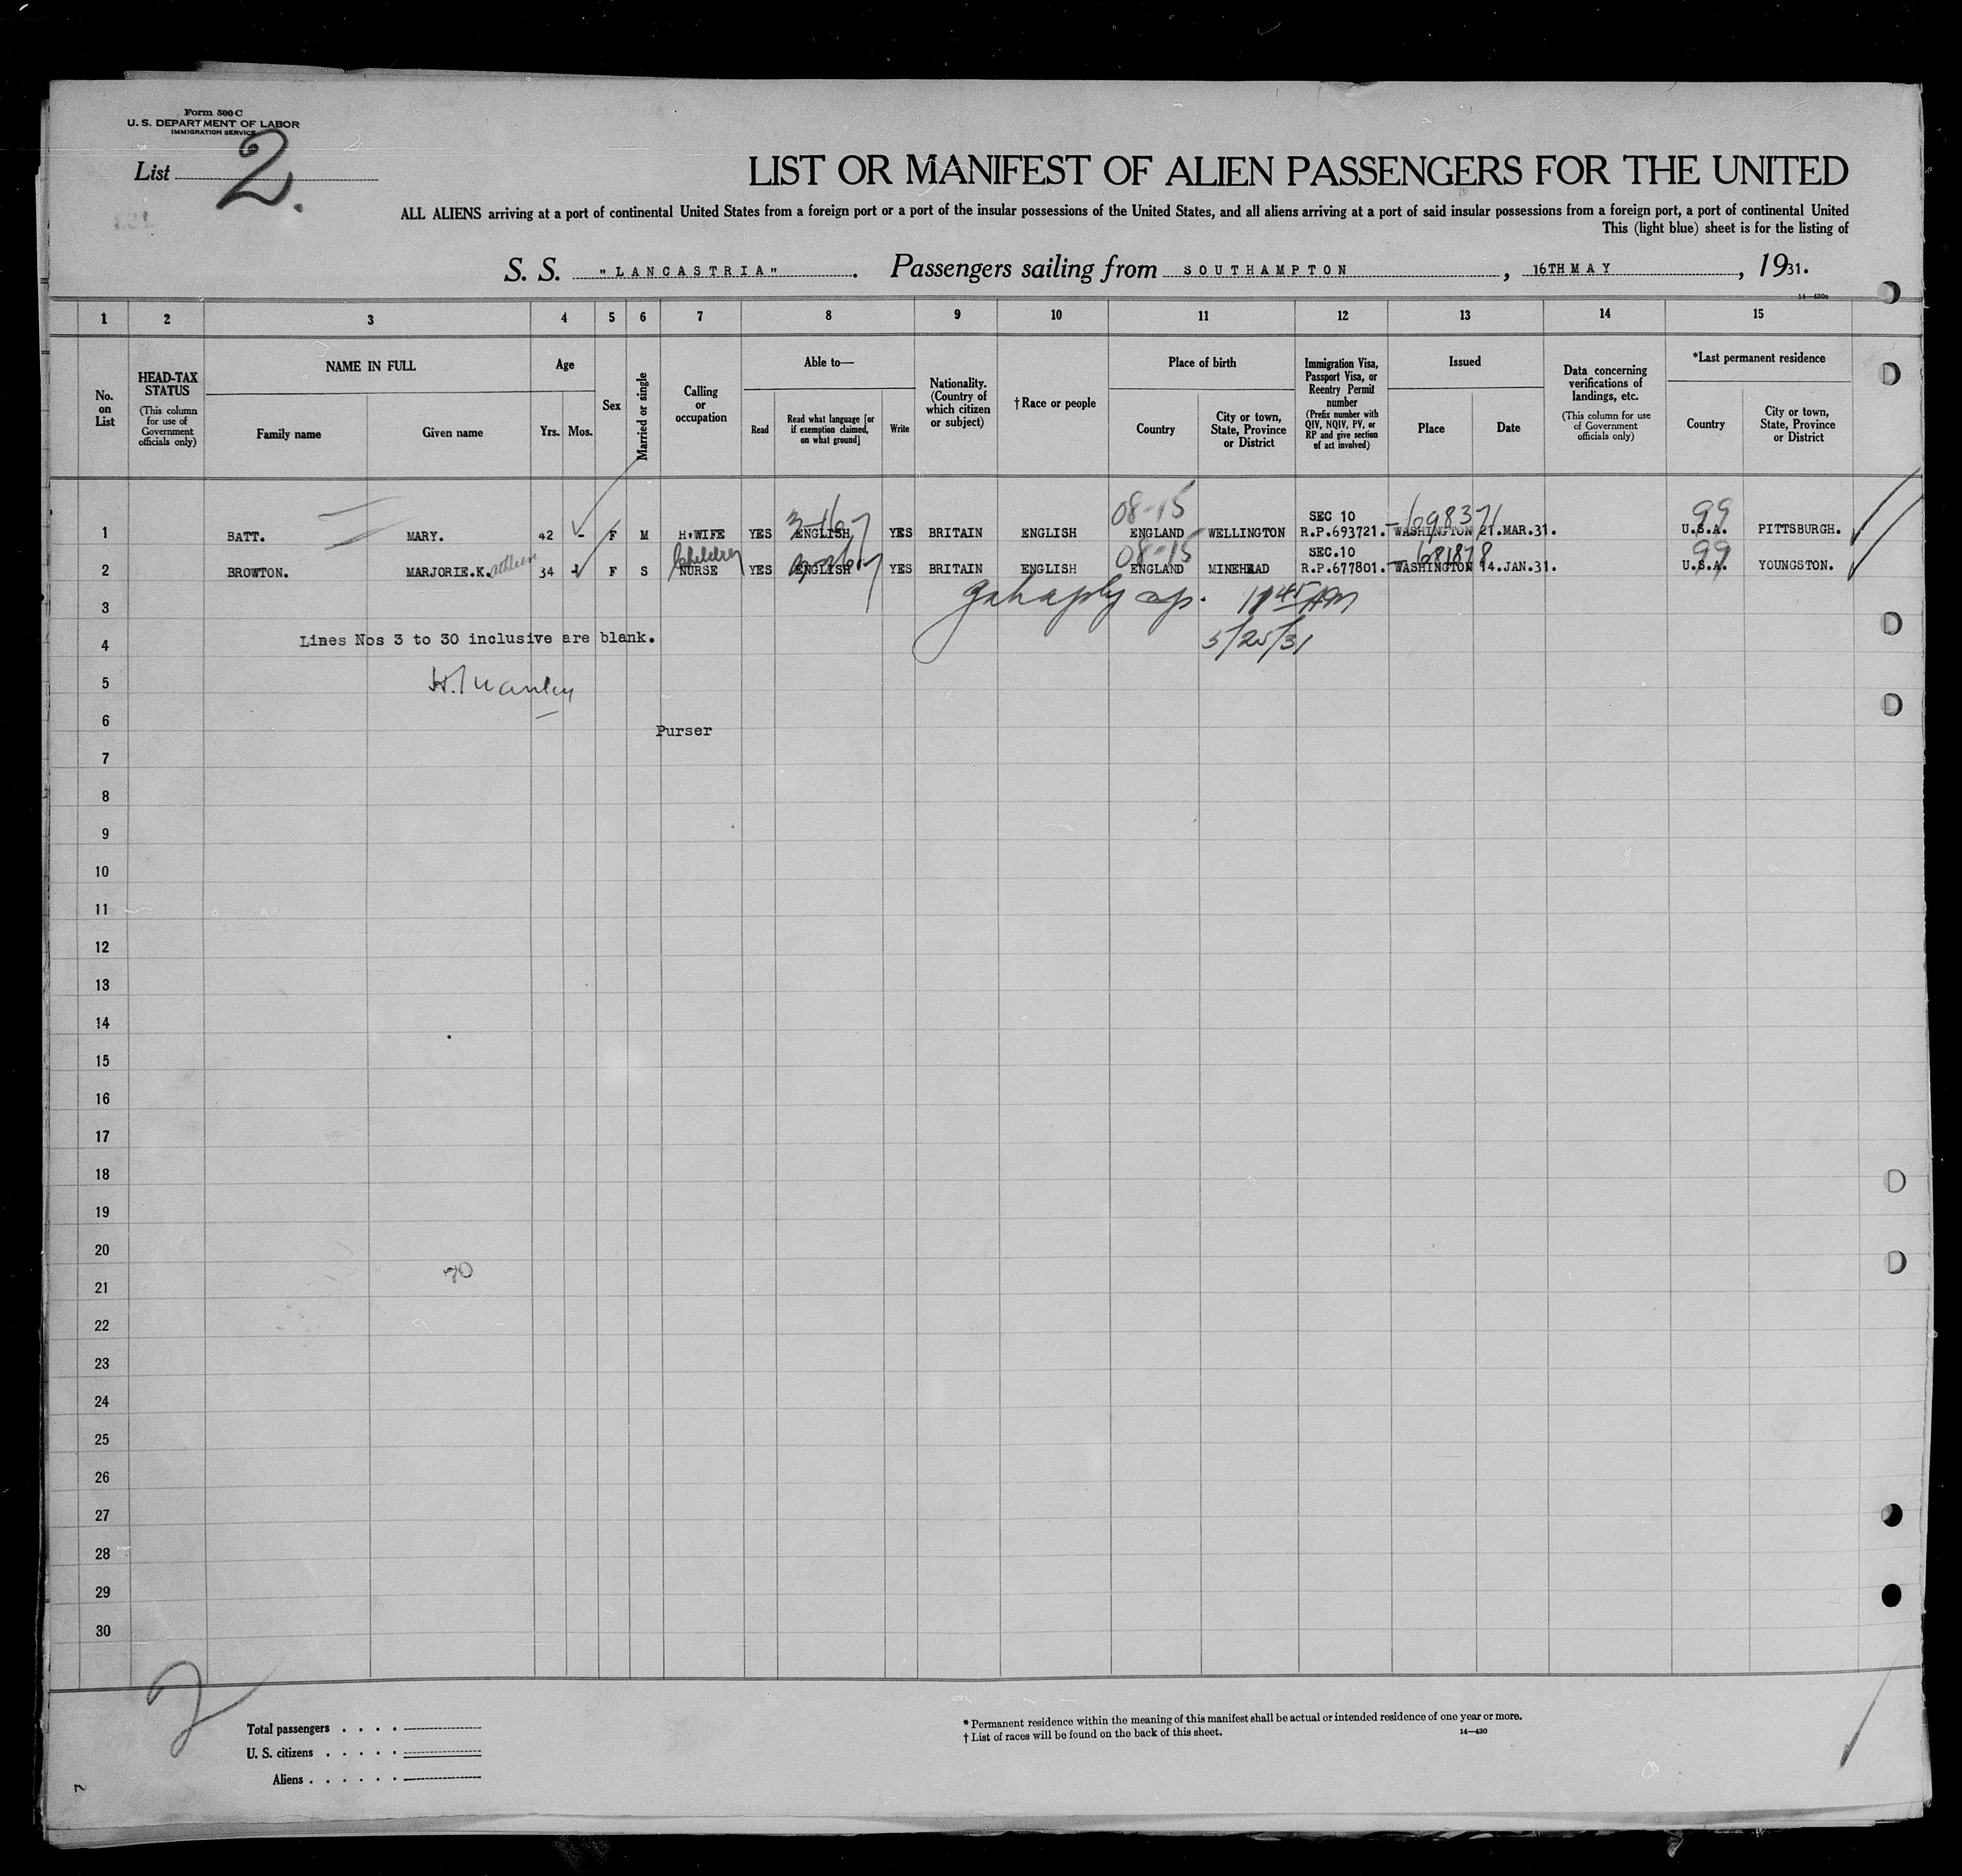 Form 500 C
U. S. DEPARTMENT OF LABOR
IMMIGRATION SERVICE
List 2.
LIST OR MANIFEST OF ALIEN PASSENGERS FOR THE UNITED
ALL ALIENS arriving at a port of continental United States from a foreign port or a port of the insular possessions of the United States, and all aliens arriving at a port of said insular possessions from a foreign port, a port of continental United
This (light blue) sheet is for the listing of
S. S. "LANCASTRIA". Passengers sailing from SOUTHAMPTON, 16TH MAY, 1931.
14—430a
1 2 3 4 5 6 7 8 9 10 11 12 13 14 15
No. on List
HEAD-TAX STATUS (This column for use of Government officials only)
NAME IN FULL
Family name Given name
Age
Yrs. Mos.
Sex
Married or single
Calling or occupation
Able to—
Read Read what language [or if exemption claimed, on what ground] Write
Nationality. (Country of which citizen or subject)
†Race or people
Place of birth
Country City or town, State, Province or District
Immigration Visa, Passport Visa, or Reentry Permit number (Prefix number with QIV, NQIV, PV, or RP and give section of act involved)
Issued
Place Date
Data concerning verifications of landings, etc. (This column for use of Government officials only)
*Last permanent residence
Country City or town, State, Province or District
08-15 SEC 10 698371 99
1 BATT. MARY. 42 - F M H.WIFE YES ENGLISH YES BRITAIN ENGLISH ENGLAND WELLINGTON R.P.693721. WASHINTON 21.MAR.31. U.S.A. PITTSBURGH.
Children 08-15 SEC.10 681878 99
2 BROWTON. MARJORIE.K.athleen 34 F S NURSE YES ENGLISH YES BRITAIN ENGLISH ENGLAND MINEHEAD R.P.677801. WASHINGTON 14.JAN.31. U.S.A. YOUNGSTON.
3 1145 AM
4 Lines Nos 3 to 30 inclusive are blank. 5/25/31
5
6 Purser
7
8
9
10
11
12
13
14
15
16
17
18
19
20
21
22
23
24
25
26
27
28
29
30
2
Total passengers . . . .
U. S. citizens . . . . .
Aliens . . . . . .
* Permanent residence within the meaning of this manifest shall be actual or intended residence of one year or more.
† List of races will be found on the back of this sheet.
14—430